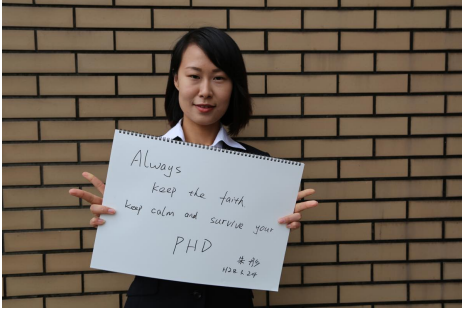 Always
keep the faith
keep calm and survive your
PHD
朱彤
H28.2.24